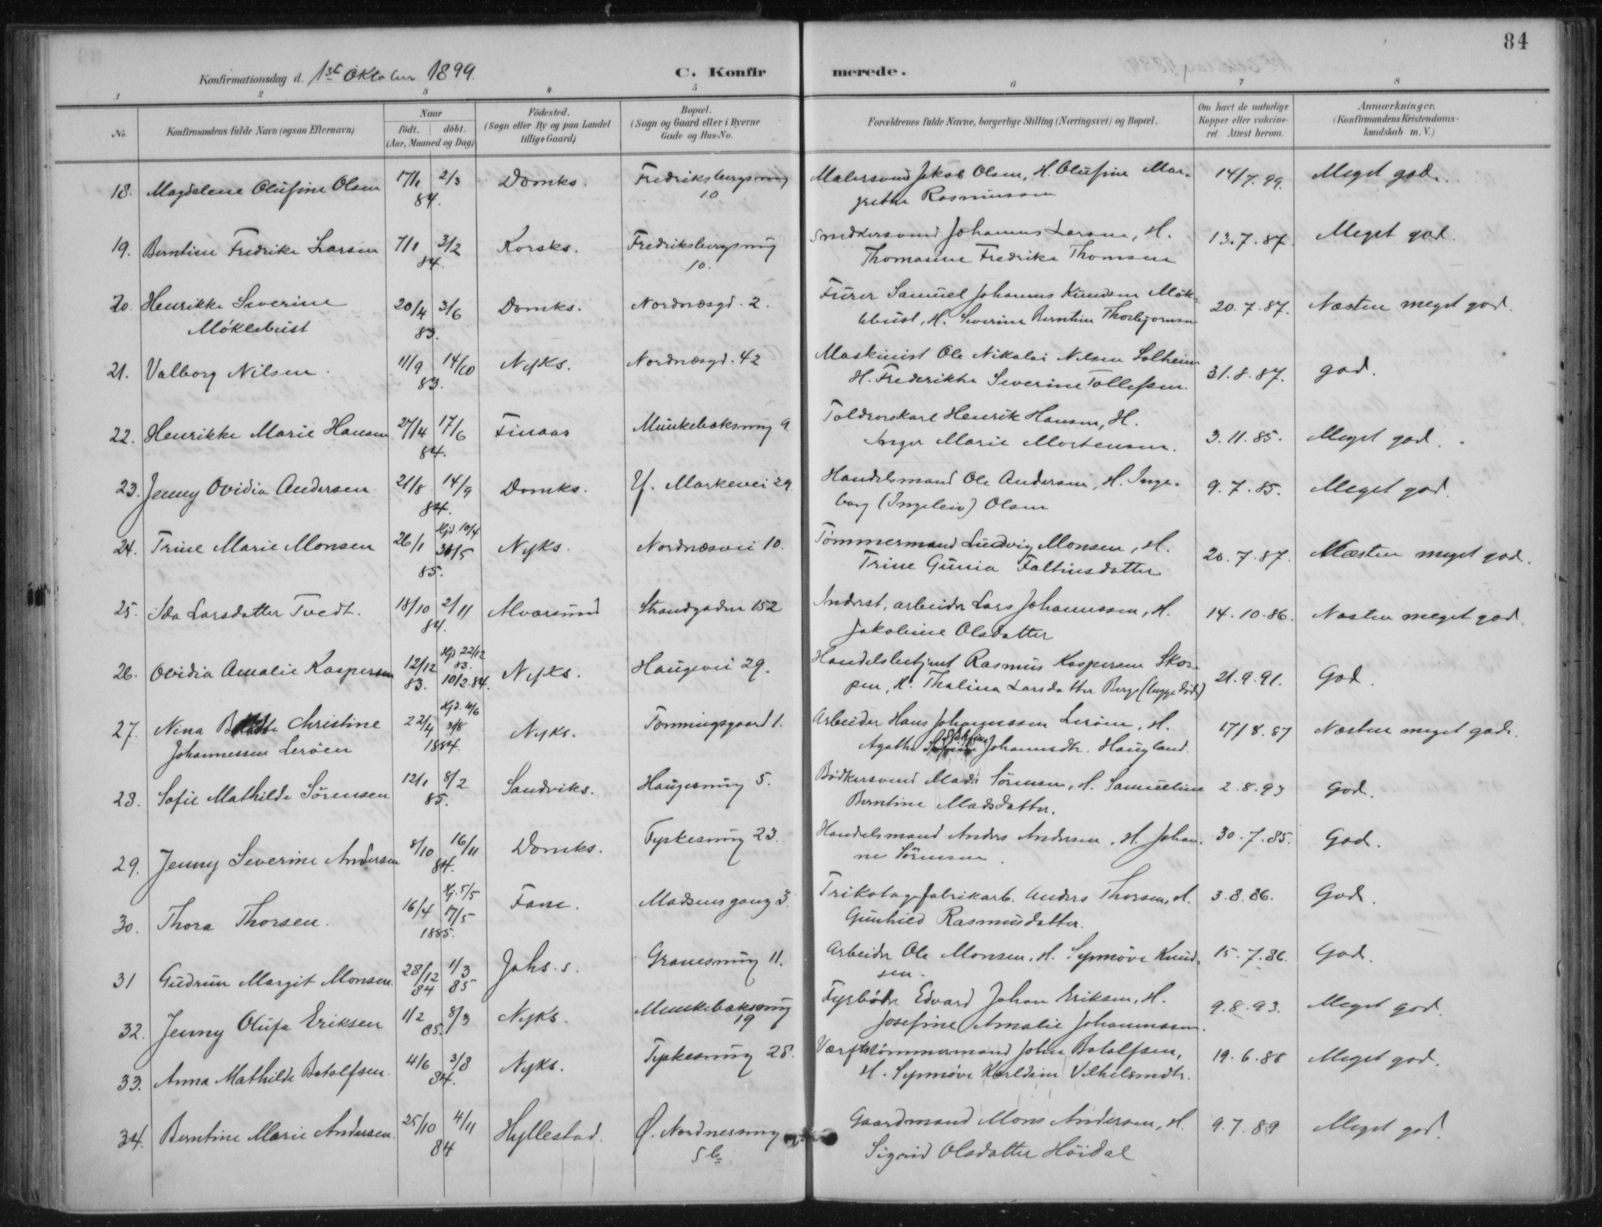 84
Konfirmationsdag d. 1ste Oktober 1899.
C. Konfirmerede.
1 2 3 4 5 6 7 8
No. Konfirmandens fulde Navn (ogsaa Efternavn) Naar født. døbt. (Aar, Maaned og Dag) Fødested. (Sogn eller By og paa Landet tillige Gaard) Bopæl. (Sogn og Gaard eller i Byerne Gade og Hus-No. Forældrenes fulde Navne, borgerlige Stilling (Næringsvei) og Bopæl. Om havt de naturlige Kopper eller vakcineret. Attest herom. Anmærkninger. (Konfirmandens Kristendomskundskab m. V.)
18. Magdalene Olufine Olsen 17/1 2/3 84. Domks. Fredriksbergsmug 10 Malersvend Jakob Olsen, H. Olufine Mar-
grethe Rasmussen 14/7.99. Meget god.
19. Berntine Fredrike Larsen 7/1 3/2 84. Korsks. Fredriksbergsmug 10. Snedkersvend Johannes Larsen, H.
Thomasine Fredrike Thomsen 13.7.87. Meget god
20. Henrikke Severine
Møklebust 20/4 3/6 83. Domks. Nordnæsgd. 2. Fürer Samuel Johannes Knudsen Møk-
lebust, H. Severine Berntine Thorbjørnsen 20.7.87. Næsten meget god.
21. Valborg Nilsen. 11/9 14/10 83. Nyks. Nordnæsgd. 42 Maskinist Ole Nikolai Nilsen Solheim
H. Frederikke Severine Tollefsen. 31.8.87. god.
22. Henrikke Marie Hansen 27/4 17/6 84. Finaas Munkebæksmug 9 Toldrorskarl Henrik Hansen, H.
Inger Marie Mortensen. 3.11.85. Meget god.
23. Jenny Ovidia Andersen 21/8 14/9 84. Domks. Markevei 29. Handelsmand Ole Andersen, H. Inge-
borg (Ingeleiv) Olsen 9.7.85. Meget god.
24. Trine Marie Monsen 26/1 Hjd. 10/4 31/5 85. Nyks. Nordnæsvei 10. Tømmermand Ludvig Monsen, H.
Trine Gunia Faltinsdatter 20.7.87. Næsten meget god.
25. Ida Larsdatter Tvedt. 18/10 2/11 84. Alversund Strandgaden 152 Inderst, arbeider Lars Johannessen, H.
Jakobine Olsdatter 14.10.86. Næsten meget god.
26. Ovidia Amalie Kaspersen 12/12 83. Hjd. 22/12 83. 10/2 84. Nyks. Haugevei 29. Handelsbetjent Rasmus Kaspersen Skor-
pen, H. Thalina Larsdatter Berge 21.9.91. God.
27. Nina Christine
Johannessen Lerøen 22/4 Hjd. 4/6 3/8 1884. Nyks. Tonningsgaard 1. Arbeider Hans Johannessen Lerøen, H.
Agathe Johannsdtr. Haugland. 17/8.87 Næsten meget god.
28. Sofie Mathilde Sörensen 12/1 8/2 85. Sandviks. Haugesmug 5. Bødkersvend Mads Sörensen, H. Samueline
Berntine Madsdatter. 2.8.93 God.
29. Jenny Severine Andersen 8/10 16/11 84. Domks. Tyskesmug 23. Handelsmand Anders Andersen, H. Johan-
ne Sörensen. 30.7.85. God.
30. Thora Thorsen. 16/4 Hj. 5/5 17/5 1885. Fane. Madsensgang 3. Trikotagefabrikarb. Anders Thorsen, H.
Gunhild Rasmusdatter. 3.8.86. God.
31 Gudrun Margit Monsen. 28/12 84 1/3 85 Johs. s. Gravesmug 11. Arbeider Ole Monsen, H. Synnøve Knud-
sen. 15.7.86. God.
32. Jenny Olufa Eriksen 1/2 8/3 85. Nyks. Munkebæksmug 19 Fyrbøder Edvard Johan Eriksen, H.
Josefine Amalie Johannessen. 9.8.93. Meget god.
33. Anna Mathilde Botolfsen. 4/6 3/8 84. Nyks. Tyskesmug 28. Værftstømmermand Johan Botolfsen,
H. Synnøve Karldine Vilhelmsdtr. 19.6.86 Meget god.
34. Berntine Marie Andersen. 25/10 4/11 84 Hyllestad. Ø. Nordnessmug
5 b. Gaardmand Mons Andersen, H.
Sigrid Olsdatter Höidal 9.7.89 Meget god.